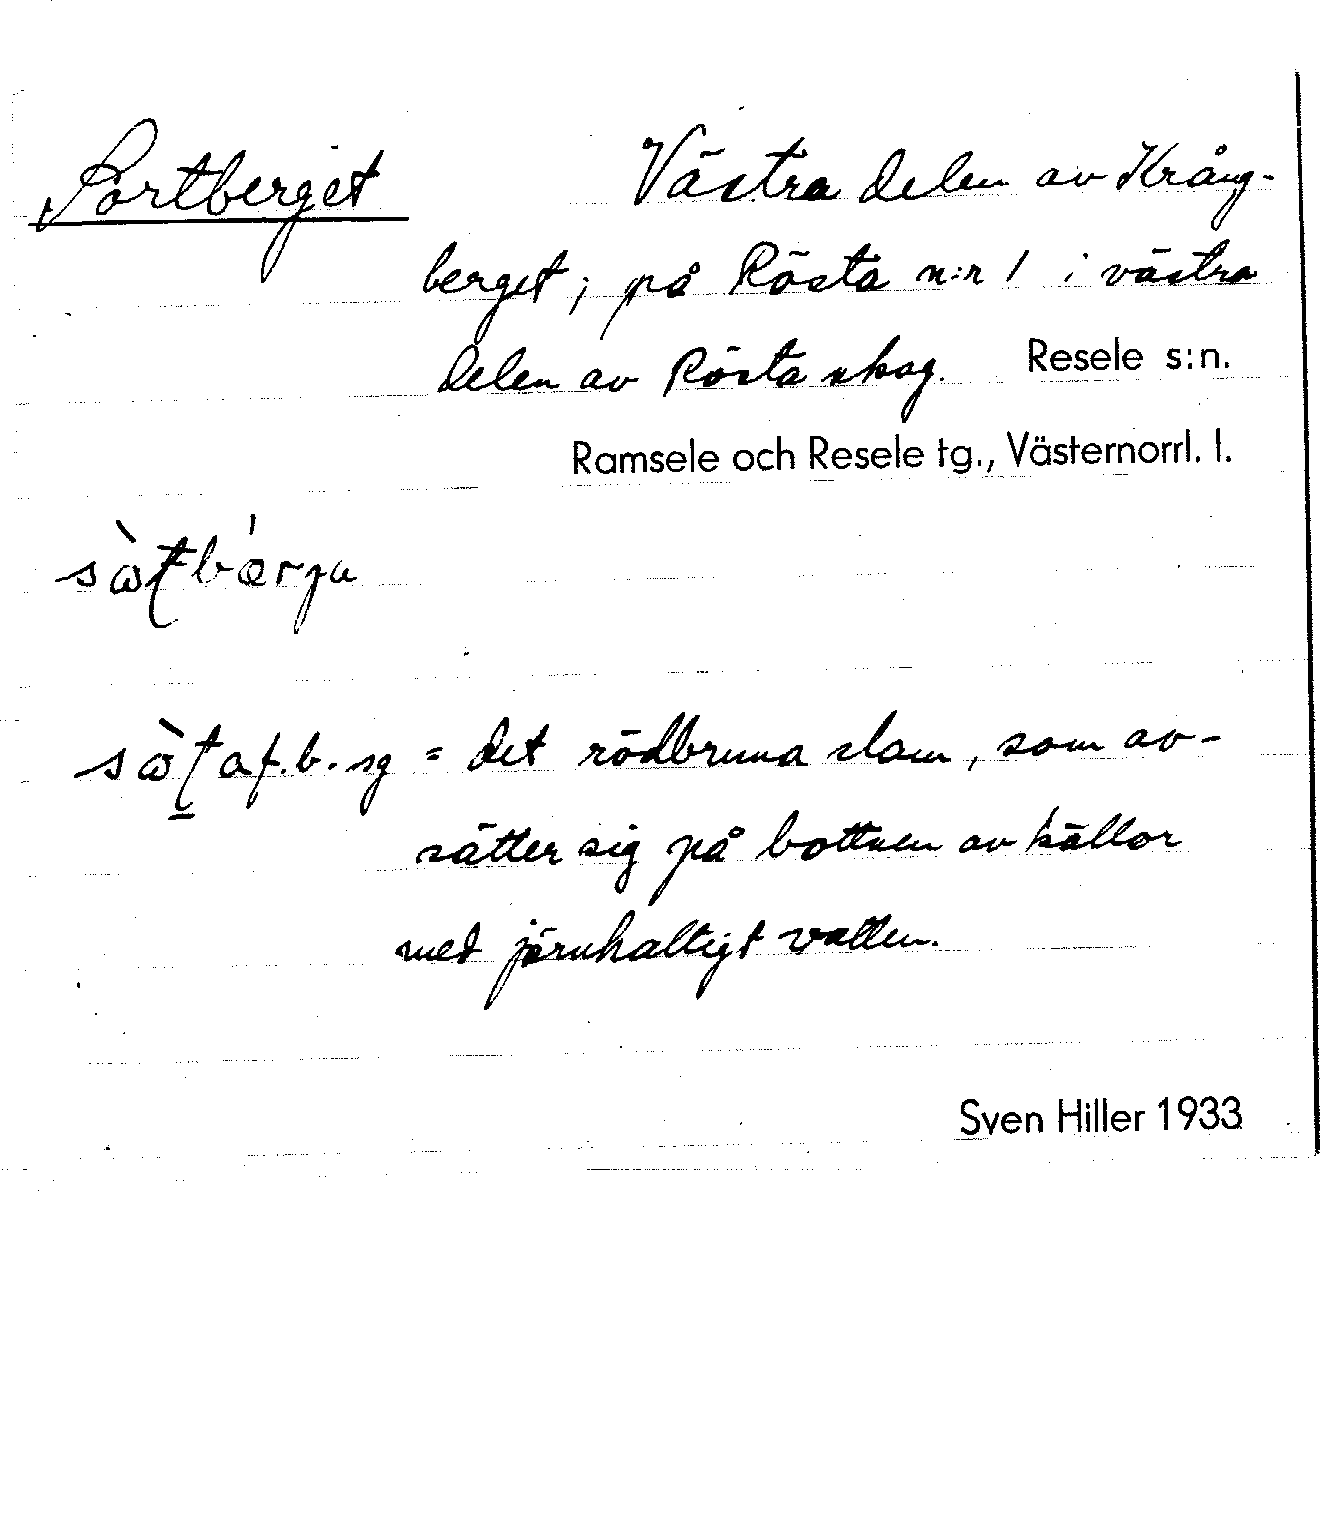 Sortberget
Västra delen av Krång-
berget; på Rösta n:r 1 i västra
delen av Rösta skog. Resele s:n.
Ramsele och Resele tg., Västernorrl. l.
f.b.sg = det rödbruna slam, som av-
sätter sig på bottnen av källor
med järnhaltigt vatten.
Sven Hiller 1933